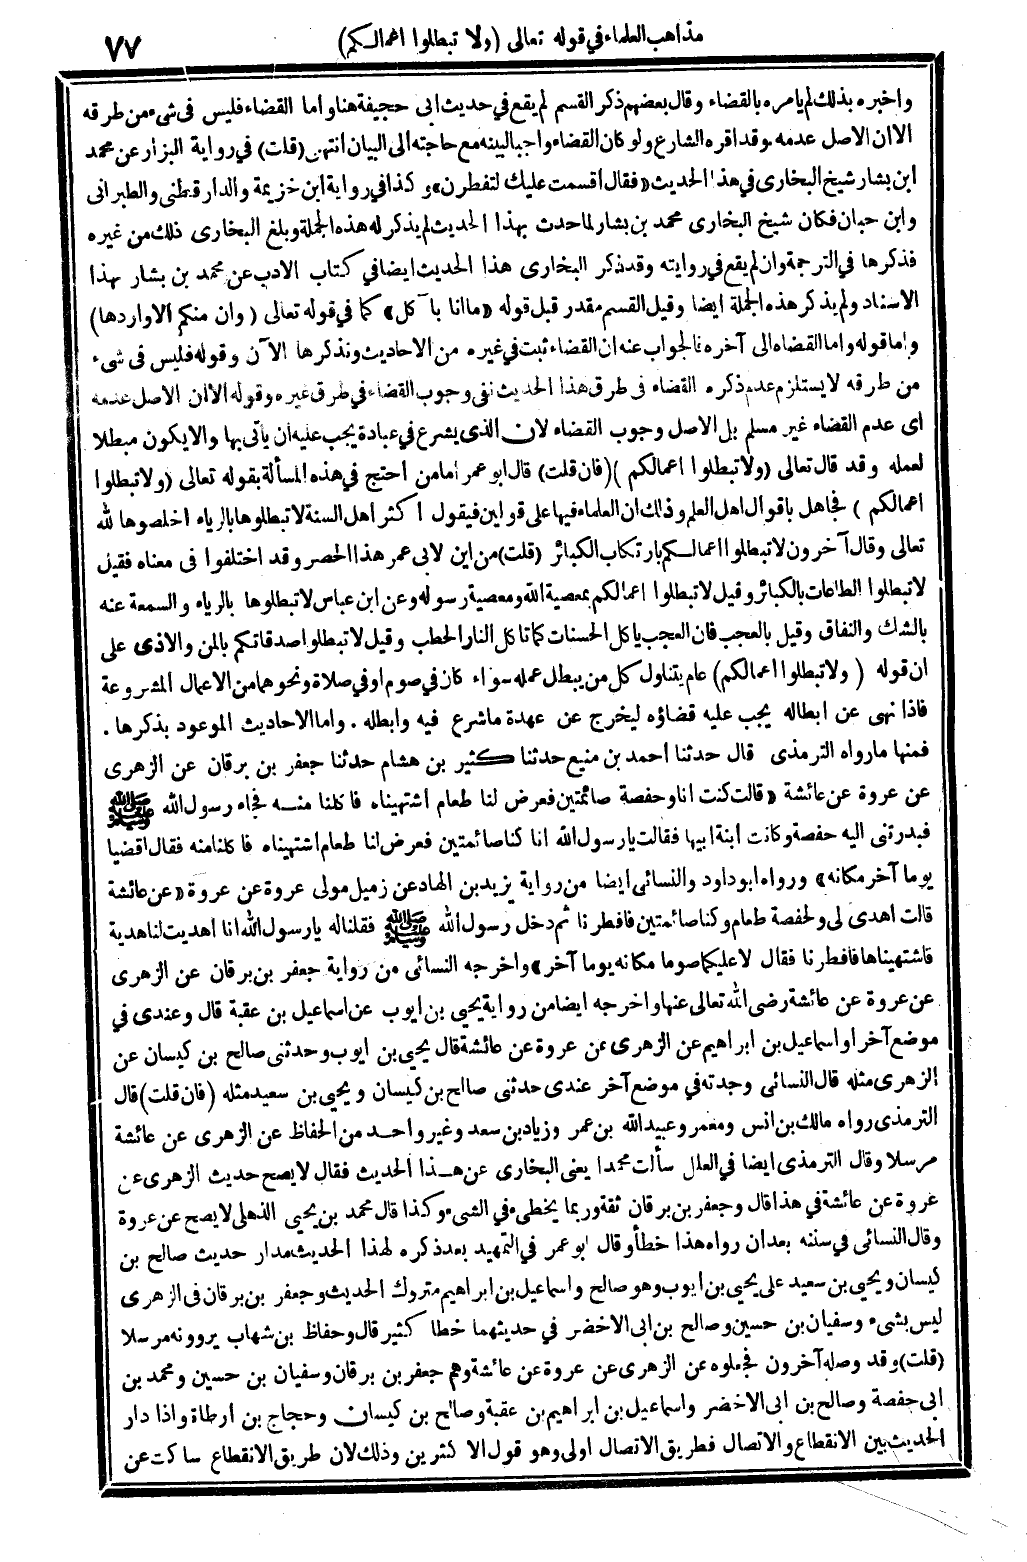 مذاهب العلماء في قوله تعالى (ولا تبطلوا اعمالكم)
٧٧
واخبره بذلك لم يامره بالقضاء وقال بعضهم ذكر القسم لم يقع في حديث ابى حجيفة هنا واما القضاء فليس فى شىء من طرقه
الا ان الاصل عدمه وقد اقره الشارع ولو كان القضاء واجبا لبينه مع حاجته الى البيان انتهى (قلت) في رواية البزار عن محمد
ابن بشار شيخ البخارى في هذا الحديث «فقال أقسمت عليك لتفطرن» وكذا في رواية ابن خزيمة والدارقطنى والطبرانى
وابن حبان فكان شيخ البخارى محمد بن بشار لما حدث بهذا الحديث لم يذكر له هذه الجملة وبلغ البخارى ذلك من غيره
فذكرها في الترجمة وان لم يقع في روايته وقد ذكر البخارى هذا الحديث ايضا في كتاب الادب عن محمد بن بشار بهذا
الاسناد ولم يذكر هذه الجملة ايضا وقيل القسم مقدر قبل قوله «ما انا بآكل» كما في قوله تعالى (وان منكم الا واردها)
واما قوله واما القضاء الى آخره فالجواب عنه ان القضاء ثبت في غيره من الاحاديث ونذكرها الآن وقوله فليس فى شىء
من طرقه لا يستلزم عدم ذكره القضاء فى طرق هذا الحديث نفى وجوب القضاء في طرق غيره وقوله الا ان الاصل عدمه
أى عدم القضاء غير مسلم بل الاصل وجوب القضاء لان الذى يشرع في عبادة يجب عليه ان يأتى بها والا يكون مبطلا
لعمله وقد قال تعالى (ولا تبطلوا اعمالكم) (فان قلت) قال ابو عمر أما من احتج في هذه المسألة بقوله تعالى (ولا تبطلوا
اعمالكم) فجاهل باقوال اهل العلم وذلك ان العلماء فيها على قولين فيقول أكثر أهل السنة لا تبطلوها بالرياء اخلصوها لله
تعالى وقال آخرون لا تبطلوا اعمالكم بارتكاب الكبائر (قلت) من اين لابى عمر هذا الحصر وقد اختلفوا فى معناه فقيل
لا تبطلوا الطاعات بالكبائر وقيل لا تبطلوا اعمالكم بمعصية الله ومعصية رسوله وعن ابن عباس لا تبطلوها بالرياء والسمعة عنه
بالشك والنفاق وقيل بالعجب فان العجب ياكل الحسنات كما تاكل النار الحطب وقيل لا تبطلوا صدقاتكم بالمن والاذى على
ان قوله (ولا تبطلوا اعمالكم) عام يتناول كل من يبطل عمله سواء كان في صوم او في صلاة ونحوهما من الاعمال المشروعة
فاذا نهى عن ابطاله يجب عليه قضاؤه ليخرج عن عهدة ما شرع فيه وابطله . واما الاحاديث الموعود بذكرها .
فمنها ما رواه الترمذى قال حدثنا أحمد بن منيع حدثنا كثير بن هشام حدثنا جعفر بن برقان عن الزهرى
عن عروة عن عائشة «قالت كنت انا وحفصة صائمتين فعرض لنا طعام اشتهيناه فاكلنا منه فجاء رسول الله ﷺ
فبدرتنى اليه حفصة وكانت ابنة ابيها فقالت يا رسول الله انا كنا صائمتين فعرض لنا طعام اشتهيناه فاكلنا منه فقال اقضيا
يوما آخر مكانه» ورواه ابو داود والنسائى ايضا من رواية يزيد بن الهاد عن زميل مولى عروة عن عروة «عن عائشة
قالت أهدى لى ولحفصة طعام وكنا صائمتين فافطرنا ثم دخل رسول الله ﷺ فقلنا له يا رسول الله انا أهديت لنا هدية
فاشتهيناها فافطرنا فقال لا عليكما صوما مكانه يوما آخر» واخرجه النسائى من رواية جعفر بن برقان عن الزهرى
عن عروة عن عائشة رضى الله تعالى عنها واخرجه ايضا من رواية يحيى بن ايوب عن اسماعيل بن عقبة قال وعندى في
موضع آخر او اسماعيل بن ابراهيم عن الزهرى عن عروة عن عائشة قال يحيى بن ايوب وحدثنى صالح بن كيسان عن
الزهرى مثله قال النسائى وجدته في موضع آخر عندى حدثنى صالح بن كيسان ويحيى بن سعيد مثله (فان قلت) قال
الترمذى رواه مالك بن انس ومعمر وعبيد الله بن عمر وزياد بن سعد وغير واحد من الحفاظ عن الزهرى عن عائشة
مرسلا وقال الترمذى ايضا في العلل سألت محمدا يعنى البخارى عن هذا الحديث فقال لا يصح حديث الزهرى عن
عروة عن عائشة في هذا قال وجعفر بن برقان ثقة وربما يخطىء في الشىء وكذا قال محمد بن يحيى الذهلى لا يصح عن عروة
وقال النسائى في سننه بعد ان رواه هذا خطأ وقال ابو عمر في التمهيد بعد ذكره لهذا الحديث مدار حديث صالح بن
كيسان ويحيى بن سعيد على يحيى بن ايوب وهو صالح واسماعيل بن ابراهيم متروك الحديث وجعفر بن برقان فى الزهرى
ليس بشىء وسفيان بن حسين وصالح بن ابى الاخضر في حديثهما خطا كثير قال وحفاظ بن شهاب يروونه مرسلا
(قلت) وقد وصله آخرون فجعلوه عن الزهرى عن عروة عن عائشة وهم جعفر بن برقان وسفيان بن حسين ومحمد بن
ابى حفصة وصالح بن ابى الاخضر واسماعيل بن ابراهيم بن عقبة وصالح بن كيسان وحجاج بن ارطاة واذا دار
الحديث بين الانقطاع والاتصال فطريق الاتصال اولى وهو قول الاكثرين وذلك لان طريق الانقطاع ساكت عن